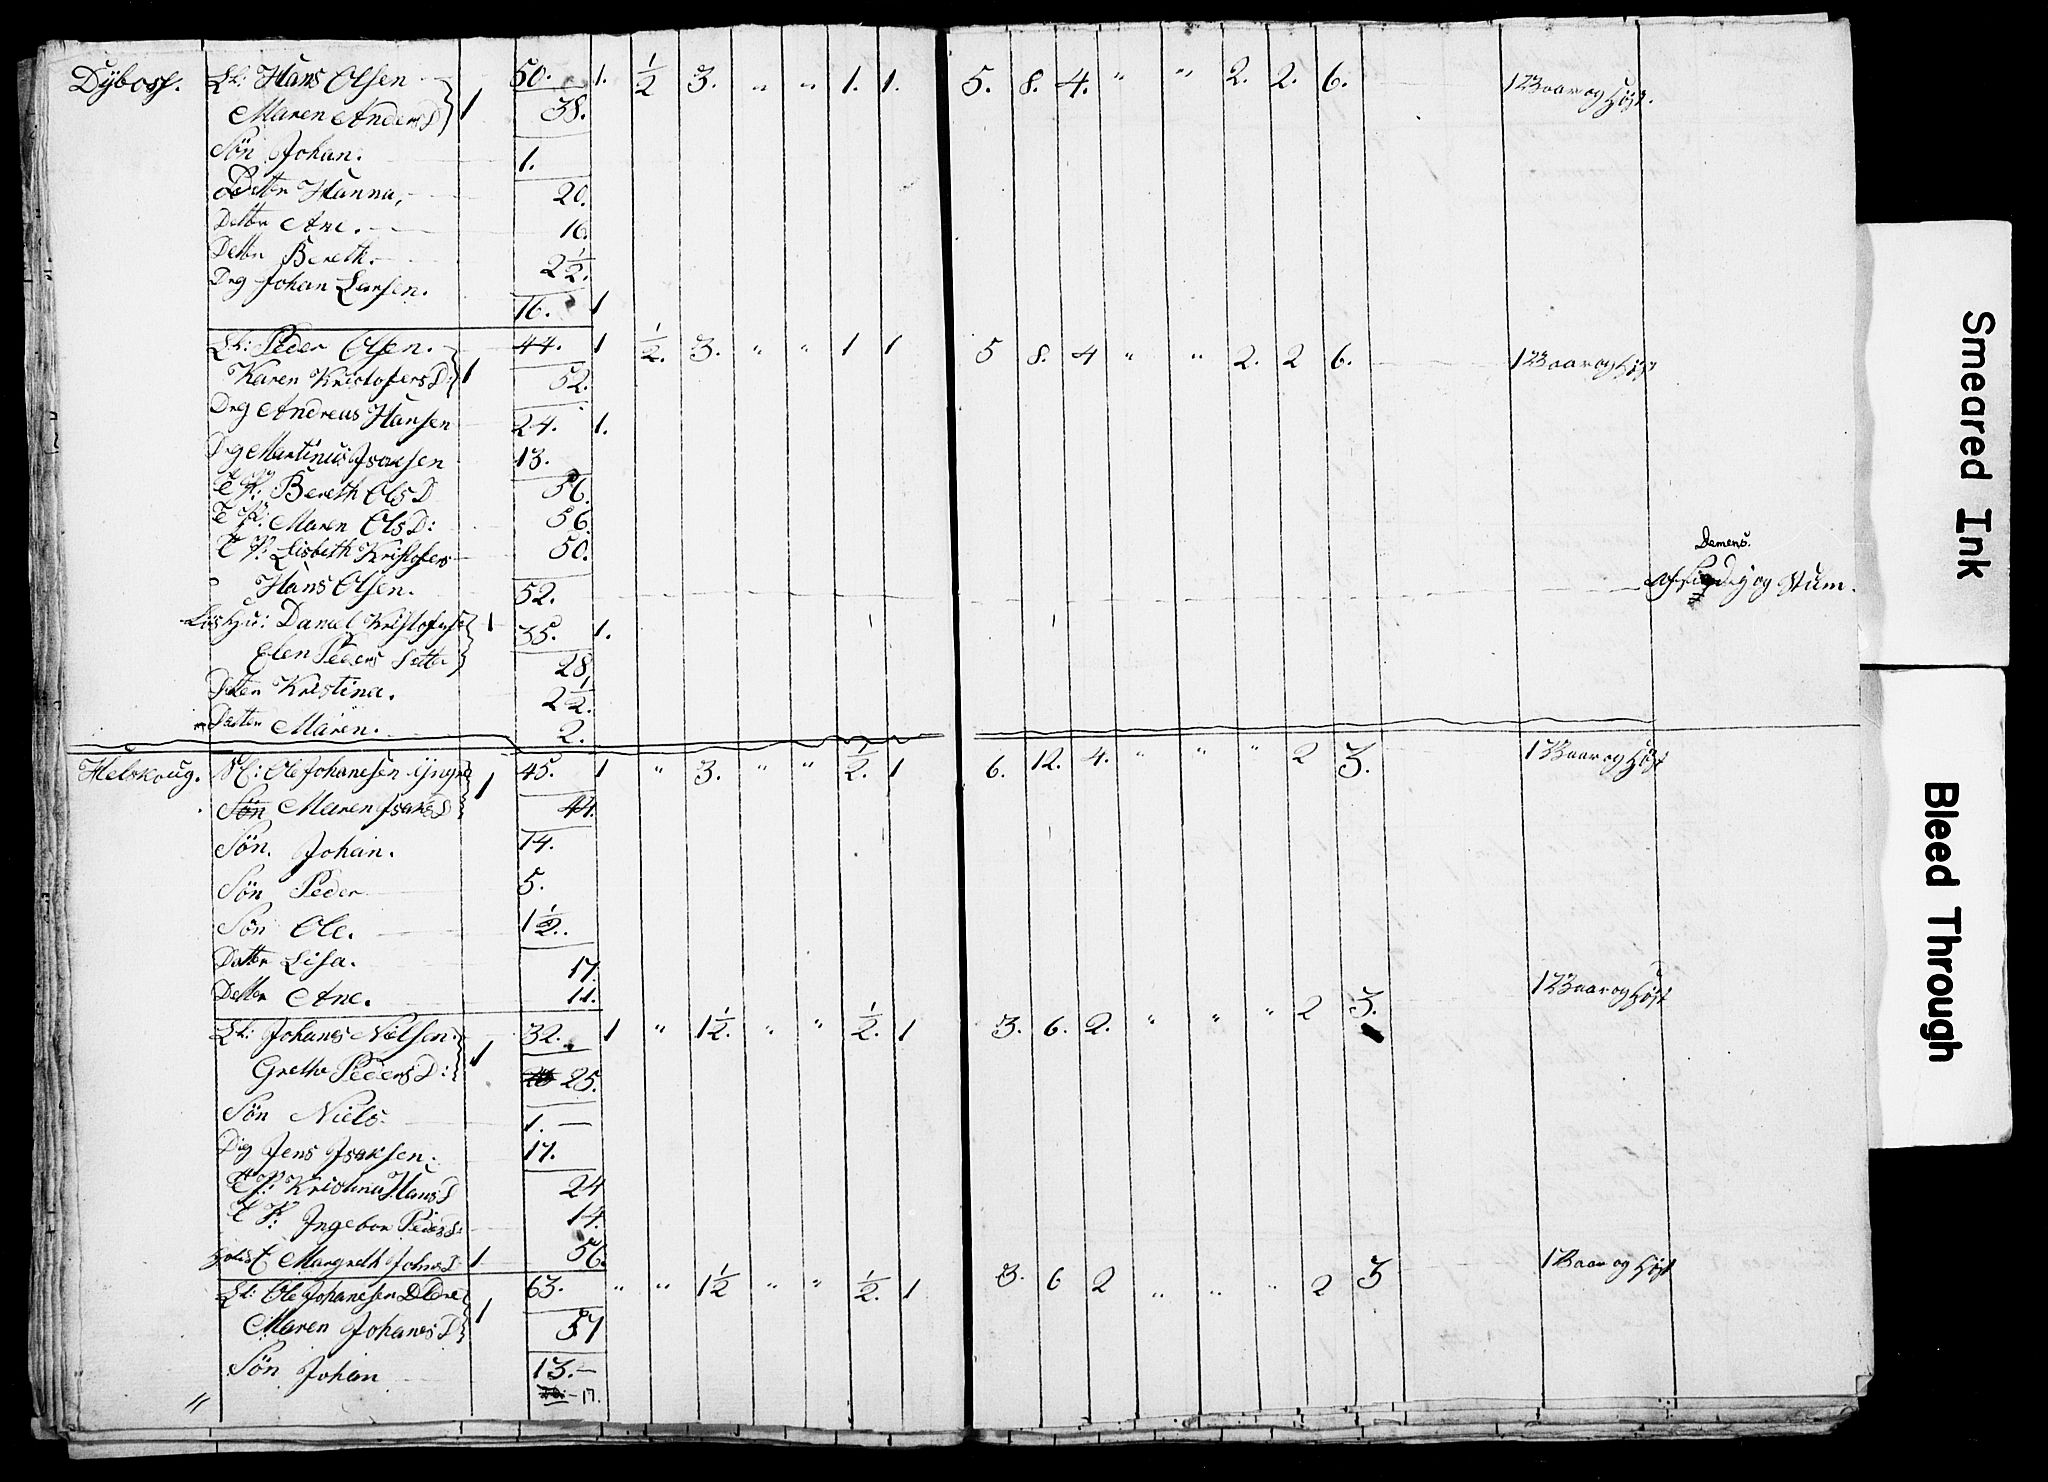 Dybosf. Lh: Hans Olsen 50. 1. ½ 3. " " 1. 1. 5. 8. 4. " " 2. 2. 6. 1 Baar og Høst.
Maren Anders D 1 38.
Søn Johan. 1.
Detter Hanna, 20.
Detter Ane. 16.
Detter Bereth. 2½.
Drg Johan Larsen. 16. 1
Lh: Peder Olsen. 44. 1 ½. 3. " " 1 1 5 8. 4 " " 2. 2 6. 1 Baar og Høst
Karen Kristofers D: 1 52.
Drg Andreus Hansen 24. 1.
Drg Martinus Isaksen 13.
T P: Bereth Ols D 56.
T P: Maren Ols D: 56.
T P: Lisbeth Kristofers 50.
Demens.
Hans Olsen. 52. og Stum.
Daniel Kristofersen 1 35. 1.
Elen Peders Detter 28.
Detter Kristina. 2½.
Datter Maren. 2.
Helskoug. Ole Johanesen Yngre 1 45. 1 " 3. " " ½. 1 6. 12. 4. " " " 2 3. 1 Baar og Høst
Søn Maren Isaks D 44.
Søn. Johan. 14.
Søn Peder 5.
Søn Ole. 1½.
Datter Lisa. 17.
Detter Ane. 11.
Lh: Johanes Nielsen. 1 32. 1 " 1½. " " ½. 1 3. 6. 2. " " " 2 3. 1 Baar og Høst
Grethe Peders D: 25.
Søn Niels. 1.
Drg Jens Isaksen. 17.
T P: Kristina Hans D 24
T P: Ingebor Peders D: 14.
Margreth Johns D 1 56.
Lh: Ole Johanesen Eldre 1 63. " " 1½ " " ½. 1 3. 6 2 " " " 2 3 1 Baar og Høst
Maren Johanes D 57
Søn Johan 13.
17.
"
Smeared Ink
Bleed Through